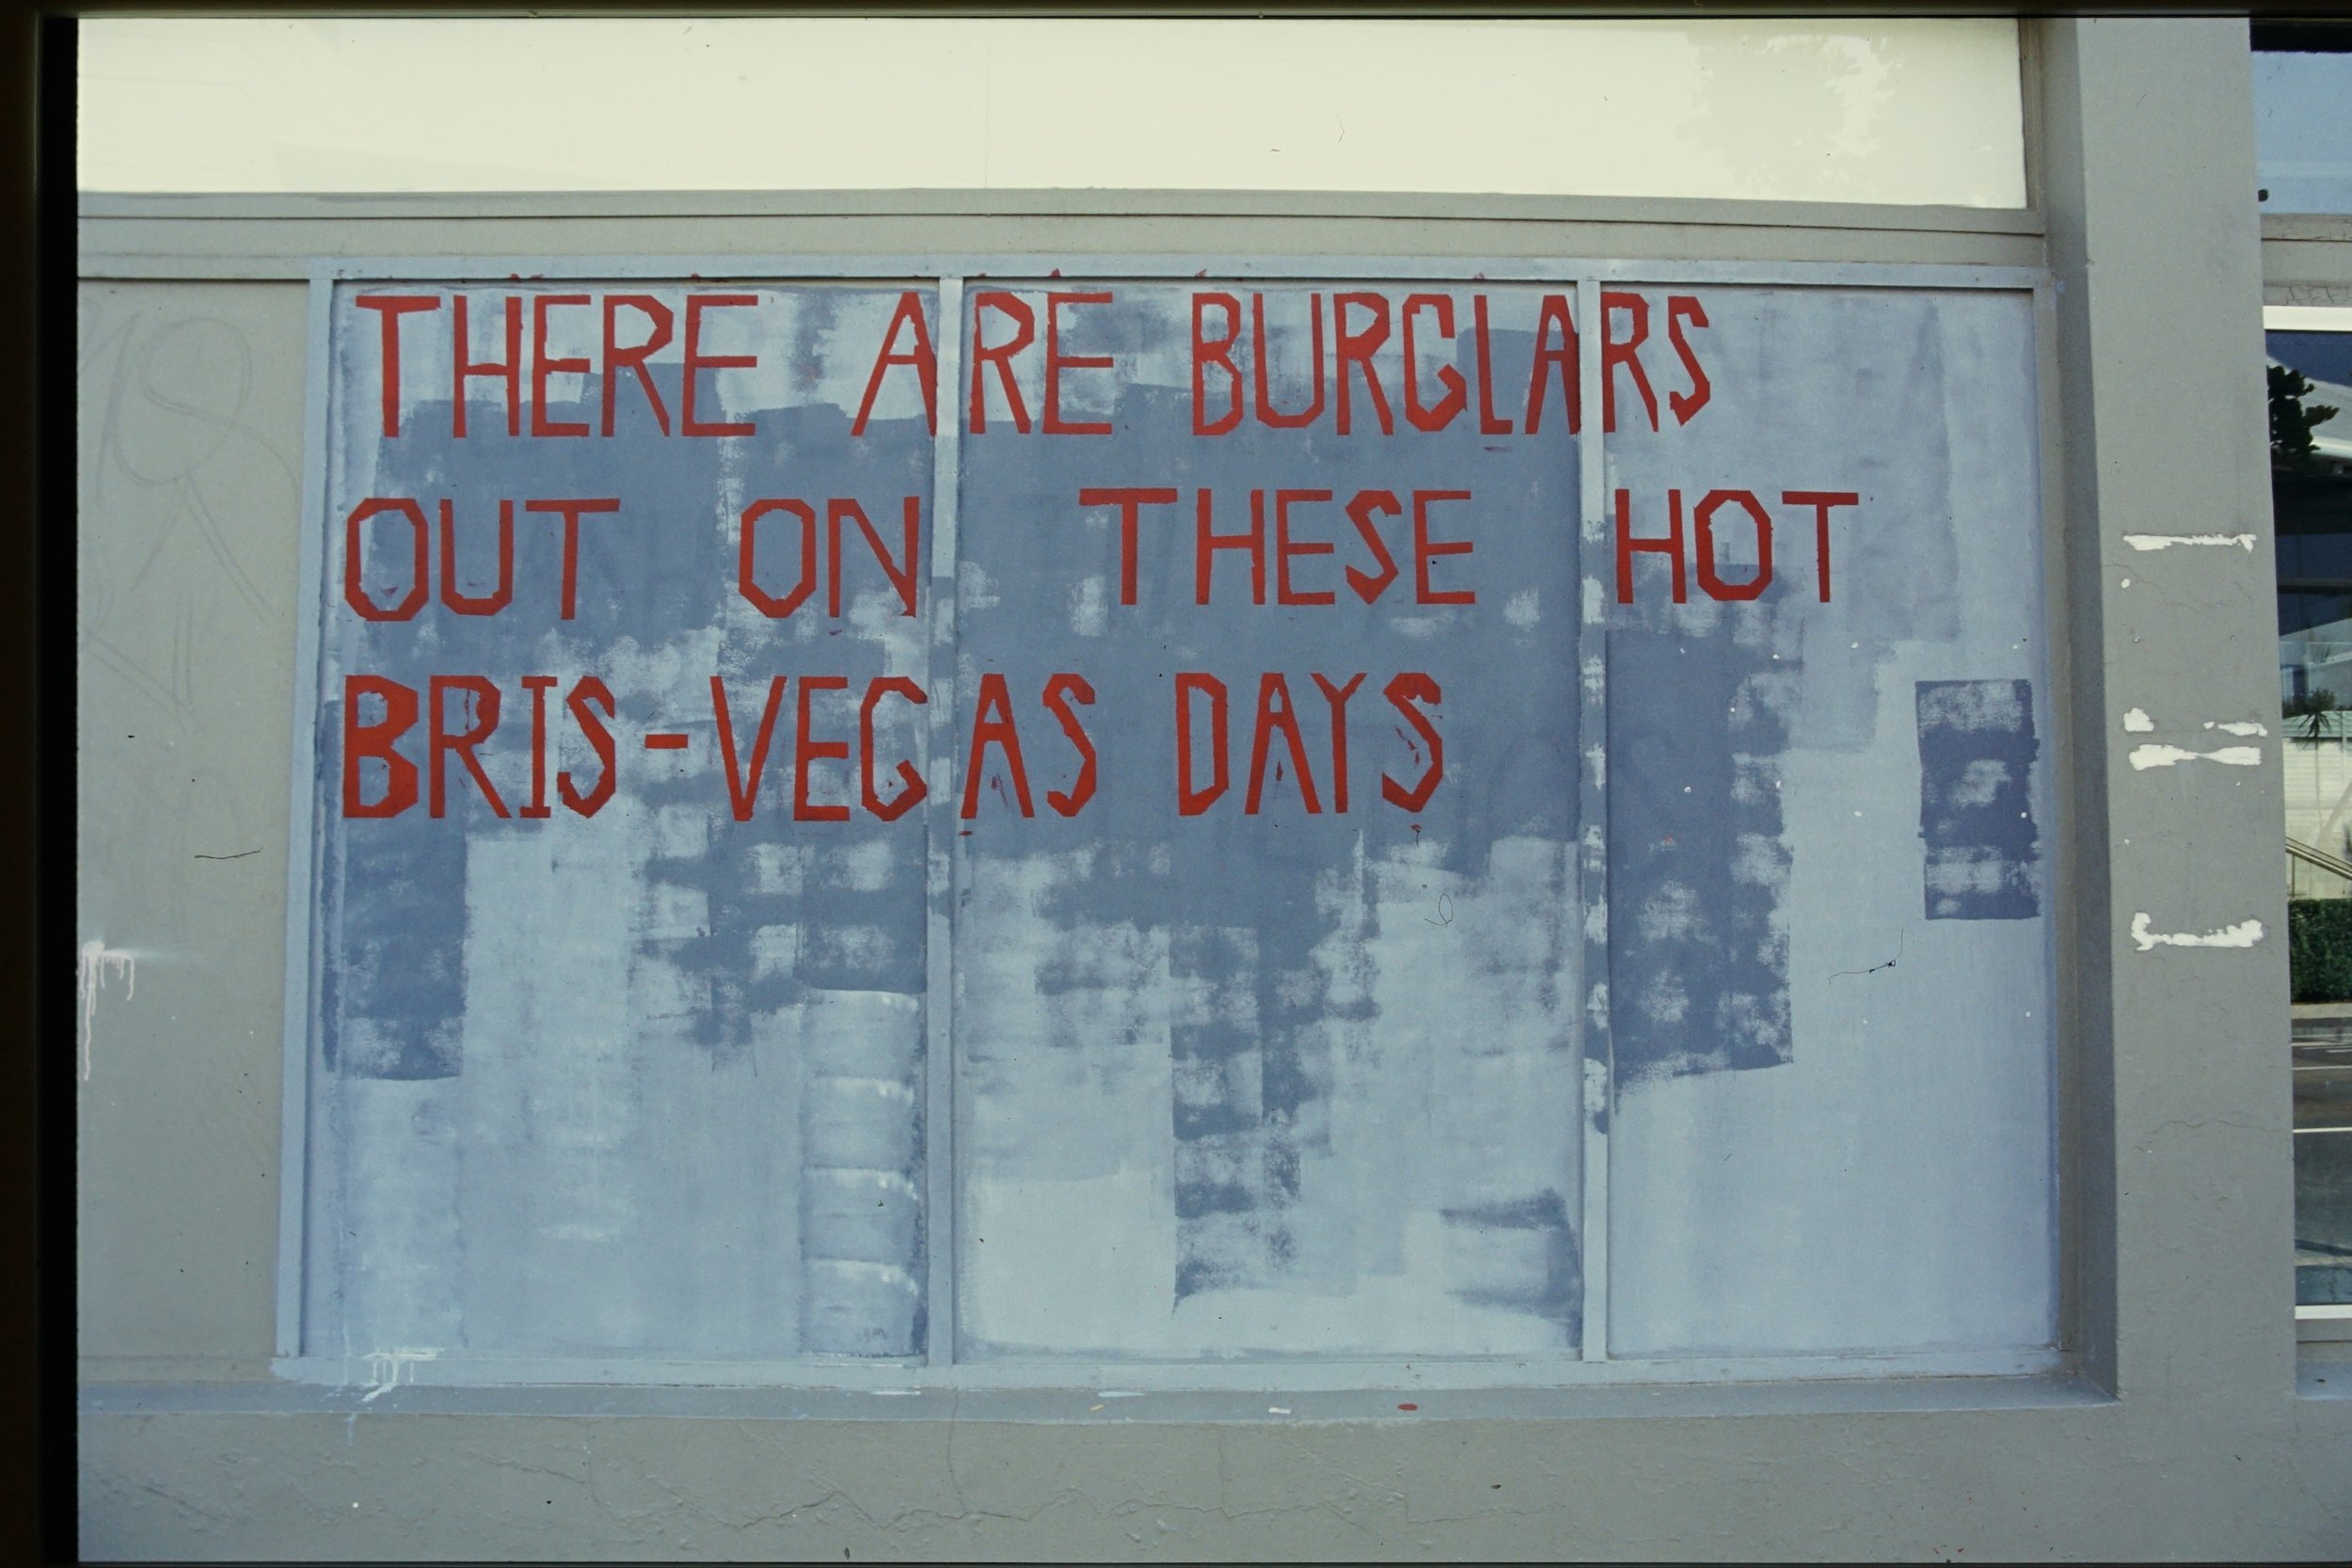 THERE ARE BURGLARS
OUT ON THESE HOT
BRIS-VEGAS DAYS